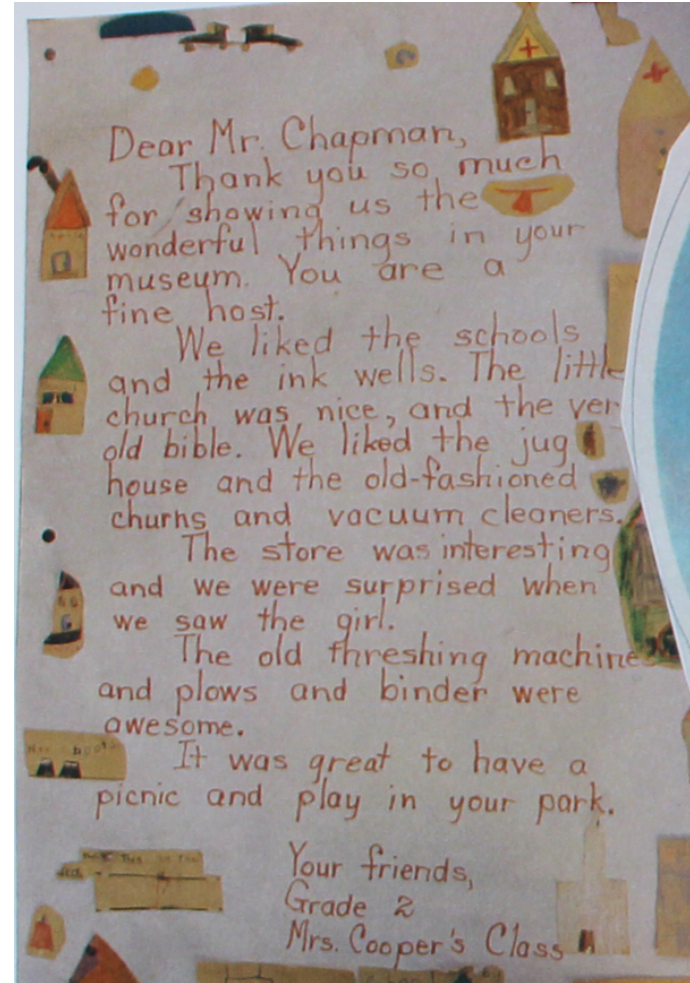 Dear Mr. Chapman,
Thank you so much
for showing us the
wonderful things in your
museum. You are a
fine host.
We liked the schools
and the ink wells. The little
church was nice, and the ver
old bible. We liked the jug
house and the old-fashioned
churns and vacuum cleaners.
The store was interesting
and we were surprised when
we saw the girl.
The old threshing machine
and plows and binder were
awesome.
boots
It was great to have a
picnic and play in your park.
Your friends,
Grade 2
Mrs. Cooper's Class